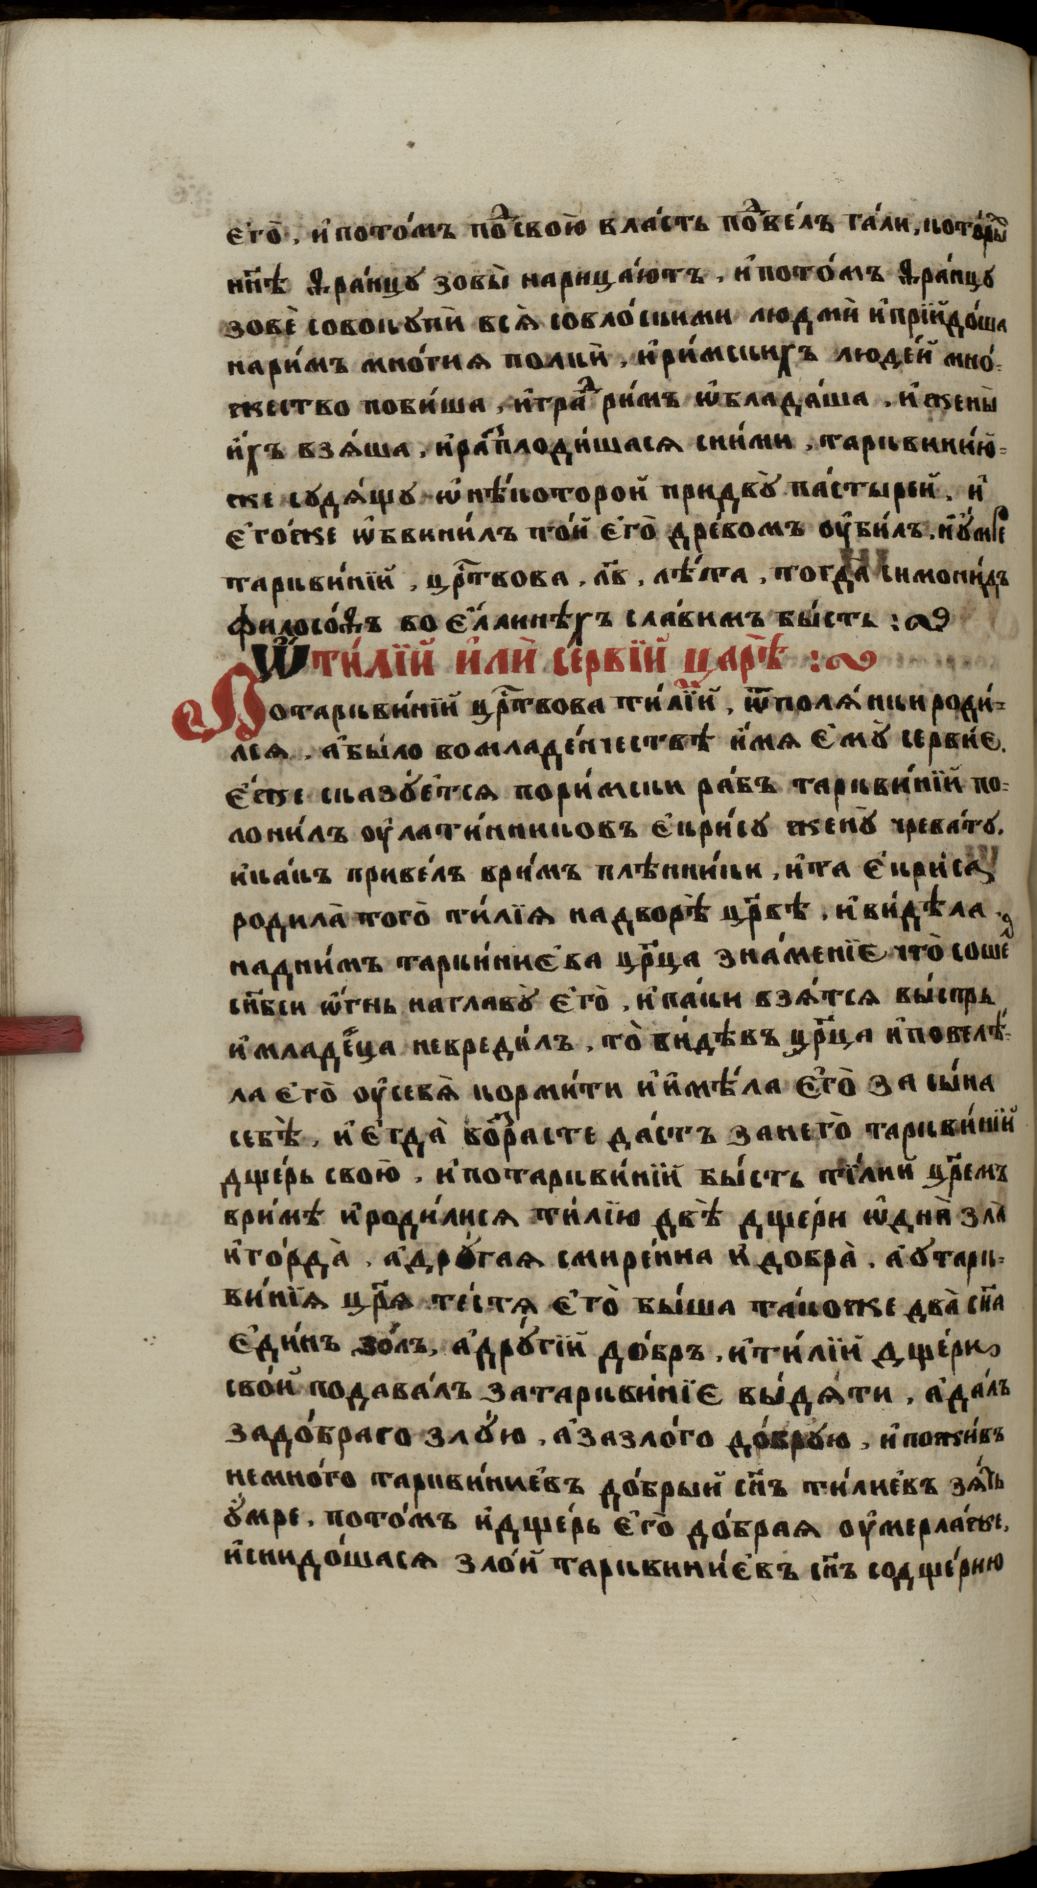 єго̀, и҆пото́мъ по́дсвою̀ вла́сть подве́лъ га́ли, кото́ры
нн҃ѣ ѳра́нцу зовы̀ нарица́ютъ, и҆пото́мъ ѳра́нцу
зовѐ совокупѝ вся̀ совло́скими людмѝ и҆прїидо́ша
нари́мъ мно́гия полкѝ, и҆ри́мскихъ люде́й мно́-
жество поби́ша, и҆гра́д ри́мъ ѡ҆блада́ша, и҆жены̀
и҆́хъ взя́ша, и҆расплоди́шася сни́ми, тарквини́ю-
же судя́щу ѡ҆нѣ́которой придву̀ па́стырей, и҆
є҆го́же ѡ҆бвини́лъ то́й є҆го̀ дре́вомъ ᲂу҆би́лъ, и҆ꙋ҆́мре
таркви́нїй, црⷭ҇твова, л҃в, лѣ́та, тогда̀ симони́дъ
филосо́ѳъ во є҆́ллинѣхъ сла́вимъ бы́сть :~
Ѡ҆ ти́лїй и҆́лѝ се́рвїй царѣ̀ :~
Потаркви́нїй црⷭ҇твова ти́лїй, ѿполя́нки роди́-
лся, а҆бы́ло вомладе́нчествѣ и҆́мя є҆му̀ серви́є,
є҆́же сказꙋ́єтся пори́мски ра́бъ таркви́нїй по-
лони́лъ ᲂу҆лати́нниковъ є҆кри́су жену̀ чрева́ту,
и҆ка́къ приве́лъ ври́мъ плѣнни́ки, и҆та є҆кри́са
родила̀ того̀ ти́лїя надворѣ̀ црⷭ҇вѣ, и҆ви́дѣла
надни́мъ тарки́ниєва црⷭ҇ца зна́менїє что̀ соше
сн҃бси ѡ҆́гнь наглаву̀ є҆го̀, и҆па́ки взя́тся вы́спрь
и҆младе́нца невреди́лъ, то̀ ви́дѣвъ црⷭ҇ца и҆повелѣ́-
ла єго̀ ᲂу҆себя̀ корми́ти и҆имѣ́ла є҆го̀ за сы́на
себѣ̀, и҆є҆гда̀ во́зрасте да́стъ занего̀ таркви́нїй
дще́рь свою̀, и҆потаркви́нїй бы́сть ти́лий црⷭ҇емъ
ври́мѣ и҆роди́лися ти́лїю двѣ̀ дще́ри ѡ҆днѝ зла̀
и҆го́рда̀, а҆дрꙋ́гая смире́нна и҆ добра̀, а҆утарк-
ви́нїя црⷭ҇я те́стя є҆го̀ бы́ша та́кожє два̀ сн҃а
є҆ди́нъ зо́лъ, а҆дрꙋ́гїй до́бръ, и҆ти́лїй дще́ри
свои́ подава́лъ затаркви́нїє вы́дяти, а҆да́лъ
задо́браго злꙋ́ю, а҆зазло́го до́брую, и҆пожи́въ
немно́го тарквинии́евъ до́брый сн҃ъ ти́лиєвъ зя́ть
ꙋ҆́мре, пото́мъ и҆дще́рь є҆го̀ до́брая ᲂу҆мерла́же,
и҆снидо́шася зло́й тарквини́євъ сн҃ъ содще́рию